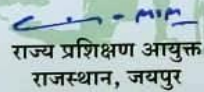 राज्य प्रशिक्षण आयुक्त
राजस्थान, जयपुर